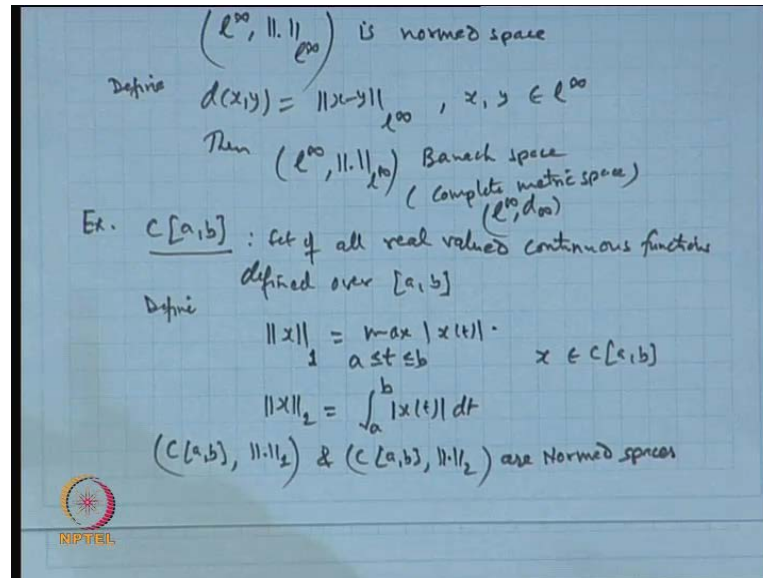 (l^∞, ||.||_{l^∞}) is normed space
Define d(x,y) = ||x-y||_{l^∞} , x, y ∈ l^∞
Then (l^∞, ||.||_{l^∞}) Banach space
(Complete metric space)
(l^∞, d_∞)
Ex. C[a,b] : Set of all real valued continuous functions
defined over [a,b]
Define
||x||_1 = max |x(t)| .
a ≤ t ≤ b x ∈ C[a,b]
||x||_2 = ∫_a^b |x(t)| dt
(C[a,b], ||.||_1) & (C[a,b], ||.||_2) are Normed spaces
NPTEL